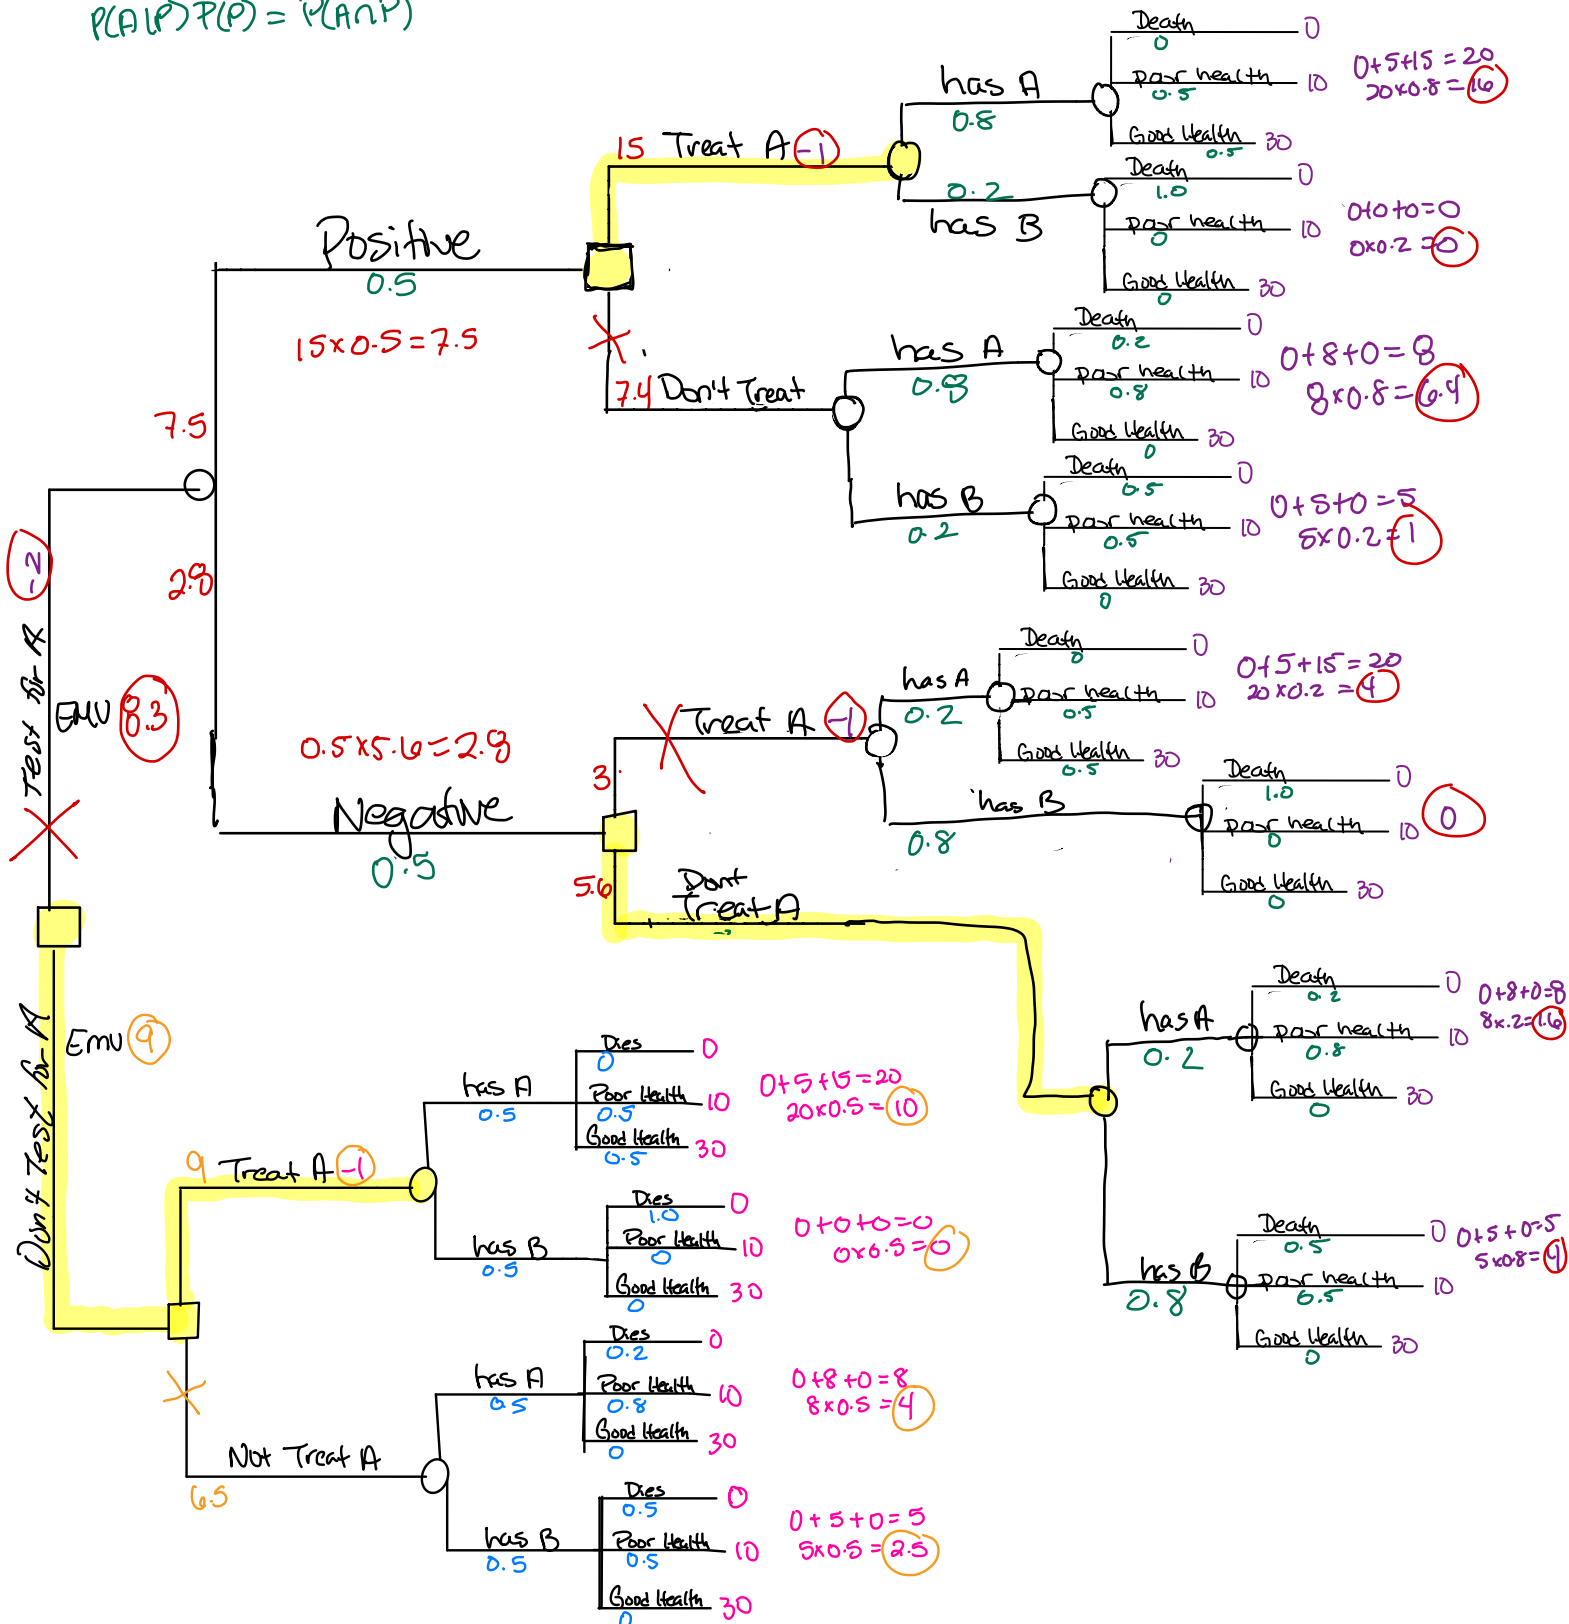 P(A|P) P(P) = P(A∩P)
Death 0
0
Poor health 10
0.5
Good Health 30
0.5
0+5+15=20
20x0.8=16
has A
0.8
15 Treat A -1
0.2
has B
Death 0
1.0
Poor health 10
0
Good Health 30
0
0+0+0=0
0x0.2=0
Positive
0.5
15x0.5=7.5
7.4 Don't Treat
has A
0.8
Death 0
0.2
Poor health 10
0.8
Good Health 30
0
0+8+0=8
8x0.8=6.4
has B
0.2
Death 0
0.5
Poor health 10
0.5
Good Health 30
0
0+5+0=5
5x0.2=1
7.5
2.8
-2
Test for A
EMV 8.3
0.5x5.6=2.8
Negative
0.5
3
Treat A -1
has A
0.2
Death 0
0
Poor health 10
0.5
Good Health 30
0.5
0+5+15=20
20x0.2=4
has B
0.8
Death 0
1.0
Poor health 10
0
Good Health 30
0
0
5.6
Dont
Treat A
has A
0.2
Death 0
0.2
Poor health 10
0.8
Good Health 30
0
0+8+0=8
8x.2=1.6
has B
0.8
Death 0
0.5
Poor health 10
0.5
Good Health 30
0
0+5+0=5
5x0.8=4
Don't Test for A
EMV 9
9 Treat A -1
has A
0.5
Dies 0
0
Poor Health 10
0.5
Good Health 30
0.5
0+5+15=20
20x0.5=10
has B
0.5
Dies 0
1.0
Poor Health 10
0
Good Health 30
0
0+0+0=0
0x0.5=0
Not Treat A
6.5
has A
0.5
Dies 0
0.2
Poor Health 10
0.8
Good Health 30
0
0+8+0=8
8x0.5=4
has B
0.5
Dies 0
0.5
Poor Health 10
0.5
Good Health 30
0
0+5+0=5
5x0.5=2.5